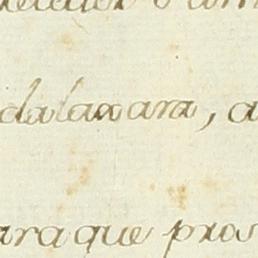 dalaxara, a
ara que pros